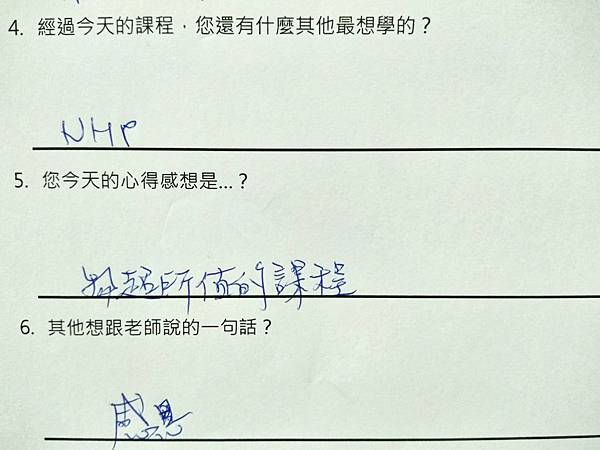 4. 經過今天的課程，您還有什麼其他最想學的？
NHP
5. 您今天的心得感想是...？
超所值的課程
6. 其他想跟老師說的一句話？
感恩